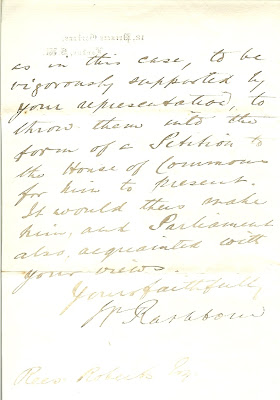 as in this case, to be
vigorously supported by
your representation, to
throw them into the
form of a Petition to
the House of Commons
for him to present.
It would thus make
him, and Parliament
also, acquainted with
your views.
Yours faithfully
W Rathbone
Rees Roberts Esq